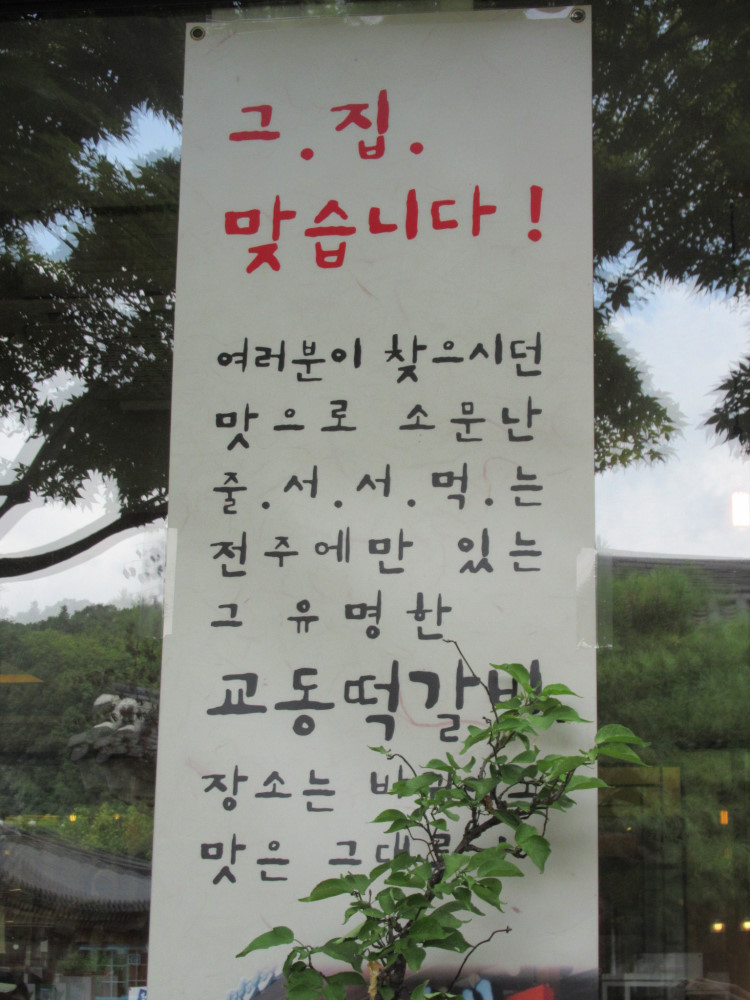 그.집.
맞습니다!
여러분이 찾으시던
맛으로 소문난
줄.서.서.먹.는
전주에만 있는
그 유명한
교동떡갈비
장소는
맛은